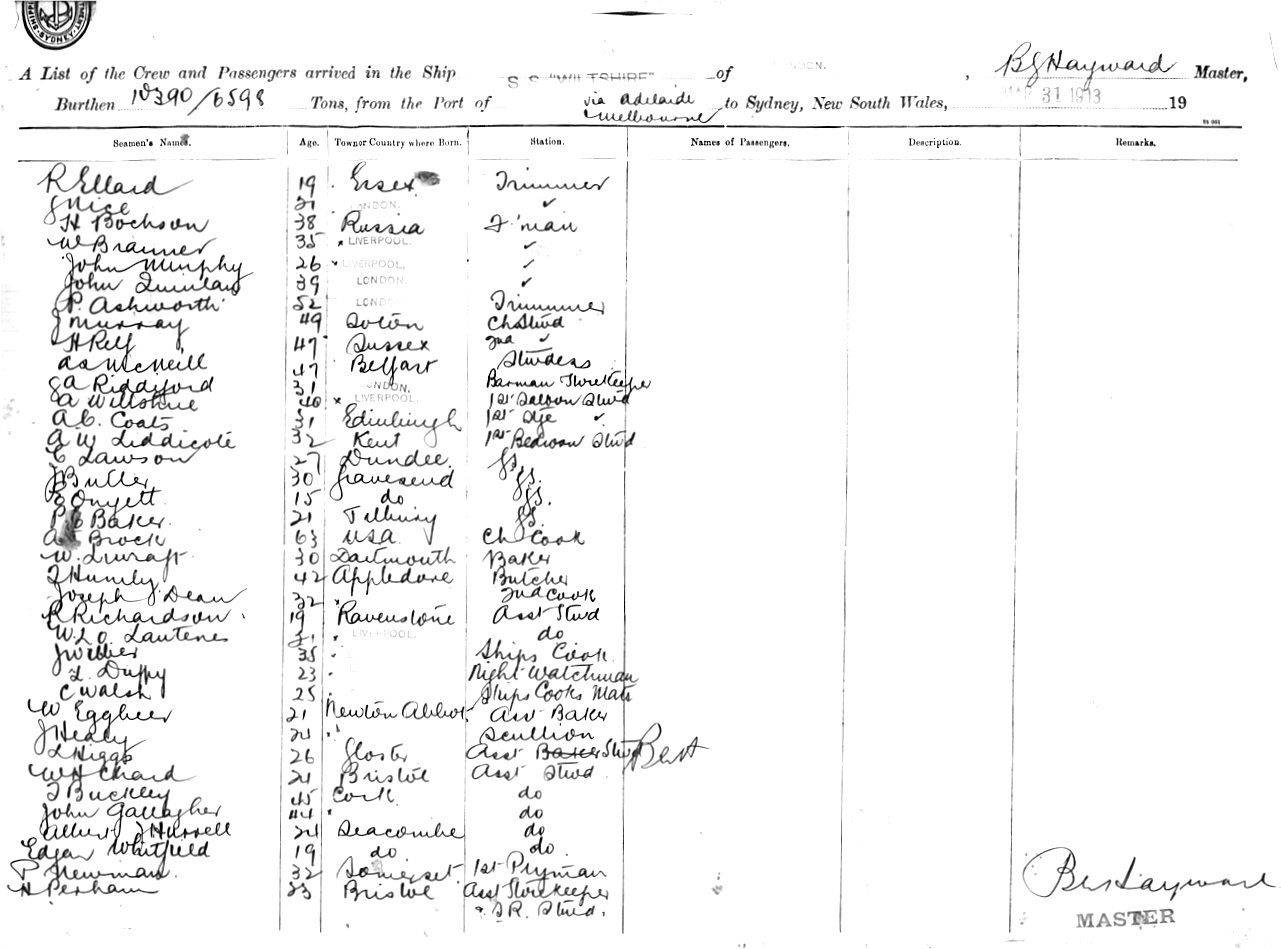 SYDNEY
A List of the Crew and Passengers arrived in the Ship S S "WILTSHIRE" of LONDON. , B G Hayward Master,
Burthen 10390/6598 Tons, from the Port of via Adelaide Melbourne to Sydney, New South Wales, MAR 31 1913 19
Seamen's Names. Age. Town or Country where Born. Station. Names of Passengers. Description. Remarks.
R Ellard 19 Essex Trimmer
J Nice 21 LONDON. ✓
H Bochson 38 Russia F'man
W Branner 35 LIVERPOOL. ✓
John Murphy 26 LIVERPOOL. ✓
John Quinlan 39 LONDON. ✓
P. Ashworth 52 LONDON Trimmer
J Murray 49 Soton Ch Stwd
H Relf 47 Sussex 2nd ✓
A S McNeill 47 Belfast Stwdess
G A Riddiford 31 LONDON. Barman Storekeeper
A Wiltshire 40 LIVERPOOL. 1st Saloon Stwd
A. C. Coats 31 Edinburgh 1st ✓
A W Liddicote 32 Kent 1st Bedroom Stwd
C Lawson 27 Dundee GS.
J Butler 30 Gravesend GS.
E Onyett 15 do GS.
P Baker 21 Tilbury GS.
A Brock 63 USA Ch Cook
W. 30 Dartmouth Baker
42 Appledore Butcher
Joseph J Dean 32 " 2nd Cook
R Richardson 19 Ravenstone Asst Stwd
W. L. O. Lautenes 21 LIVERPOOL. do
J 35 " Ships Cook
Duffy 23 " Night Watchman
C Walsh 25 " Ships Cooks Mate
W Eggbeer 21 Newton Abbot Asst Baker
J Healy 21 " Scullion
L Higgs 26 Gloster Asst Baker Stwd Bert
W H Chard 21 Bristol Asst Stwd
T Buckley 45 Cork do
John Gallagher 44 " do
Albert J Hurrell 24 Seacombe do
Edgar Whitfield 19 do do
P Newman 32 Somerset 1st Ptryman
H Perham 33 Bristol Asst Storekeeper
& S.R. Stwd.
Hayward
MASTER